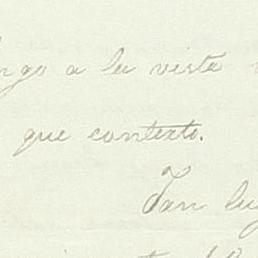 a la vista
que contexto.
Tan lug